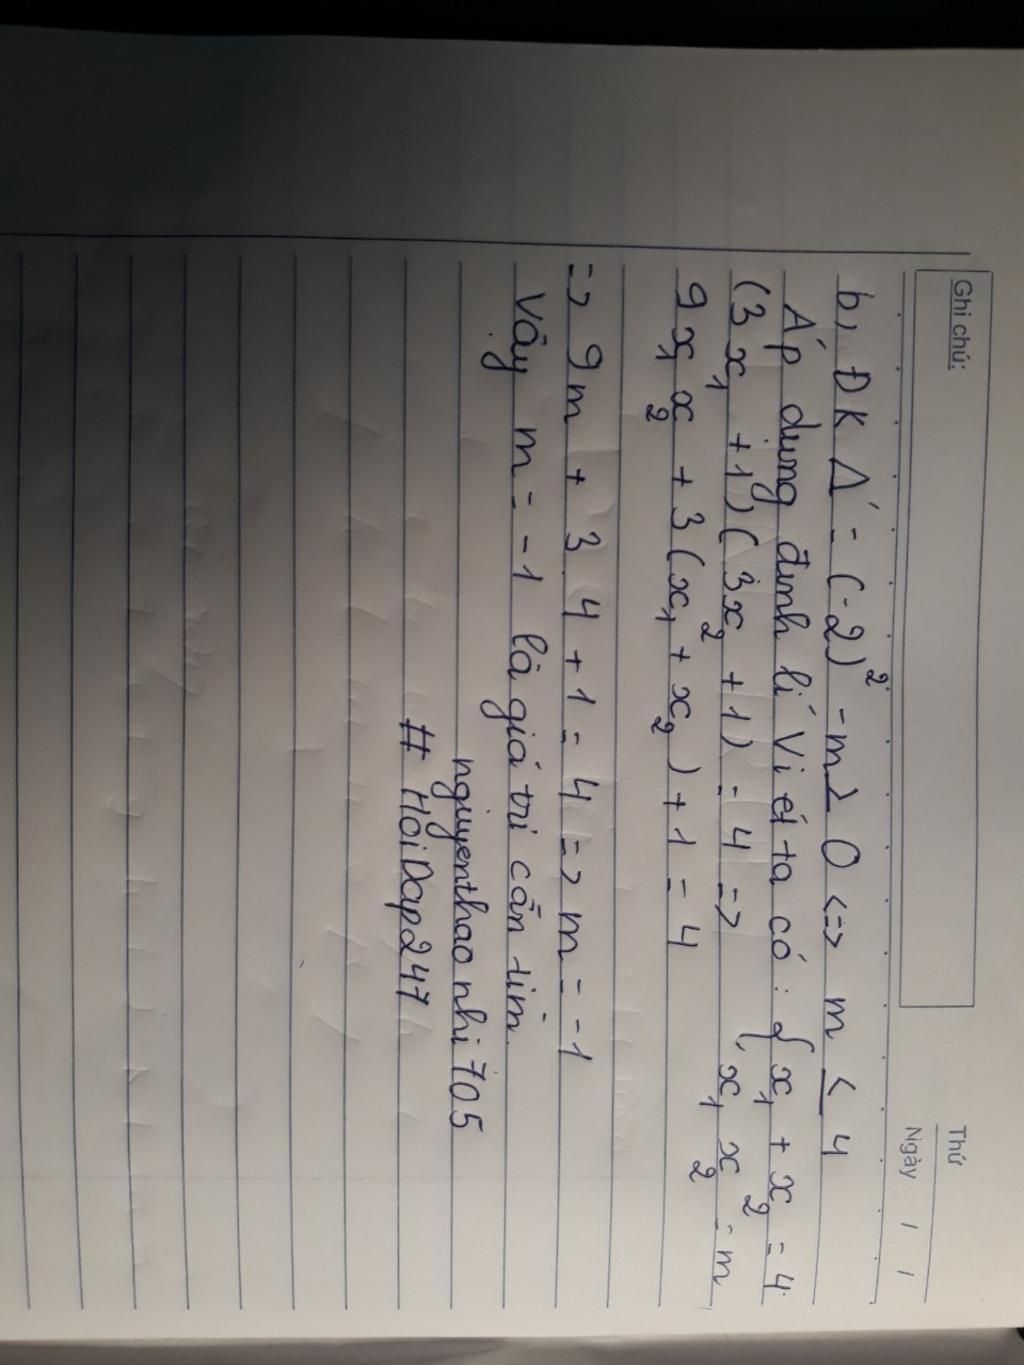 Ghi chú:
Thứ
Ngày / /
b, ĐK Δ' = (-2)² - m ≥ 0 <=> m ≤ 4
Áp dụng định lí Vi ét ta có : { x₁ + x₂ = 4
(3x₁ + 1)(3x₂ + 1) = 4 => x₁x₂ = m
9x₁x₂ + 3(x₁ + x₂) + 1 = 4
=> 9m + 3.4 + 1 = 4 => m = -1
Vậy m = -1 là giá trị cần tìm.
nguyenthaonhi705
# HoiDap247